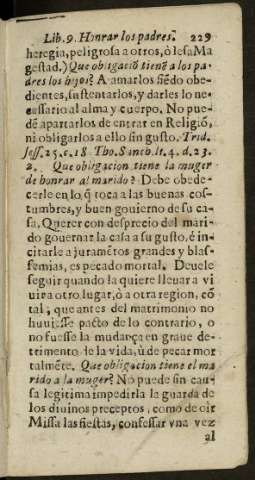 Lib. 9. Honrar los padres. 229
heregia, peligrosa a otros, ò lesa Ma
gestad.) Que obligaciõ tienẽ a los pa-
dres los hijos? A amarlos siẽdo obe-
dientes, sustentarlos, y darles lo ne-
cessario al alma y cuerpo. No pue-
dẽ apartarlos de entrar en Religiõ,
ni obligarlos a ello sin gusto. Trid.
Sess. 25. c. 18. Tho. Sanch. lt. 4. d. 23.
2. Que obligacion tiene la muger
de honrar al marido? Debe obede-
cerle en lo q̃ toca a las buenas cos-
tumbres, y buen gouierno de su ca-
sa, Querer con desprecio del mari-
do gouernar la casa a su gusto, é in-
citarle a juramẽtos grandes y blas-
femias, es pecado mortal. Deuele
seguir quando la quiere lleuar a vi
uir a otro lugar, ò a otra region, cõ
tal, que antes del matrimonio no
huuiesse pacto de lo contrario, o
no fuesse la mudança en graue de-
trimento de la vida, ù de pecar mor
talmẽte. Que obligacion tiene el ma
rido a la muger? No puede sin cau-
sa legitima impedirla la guarda de
los diuinos preceptos, como de oir
Missa las fiestas, confessar vna vez
al